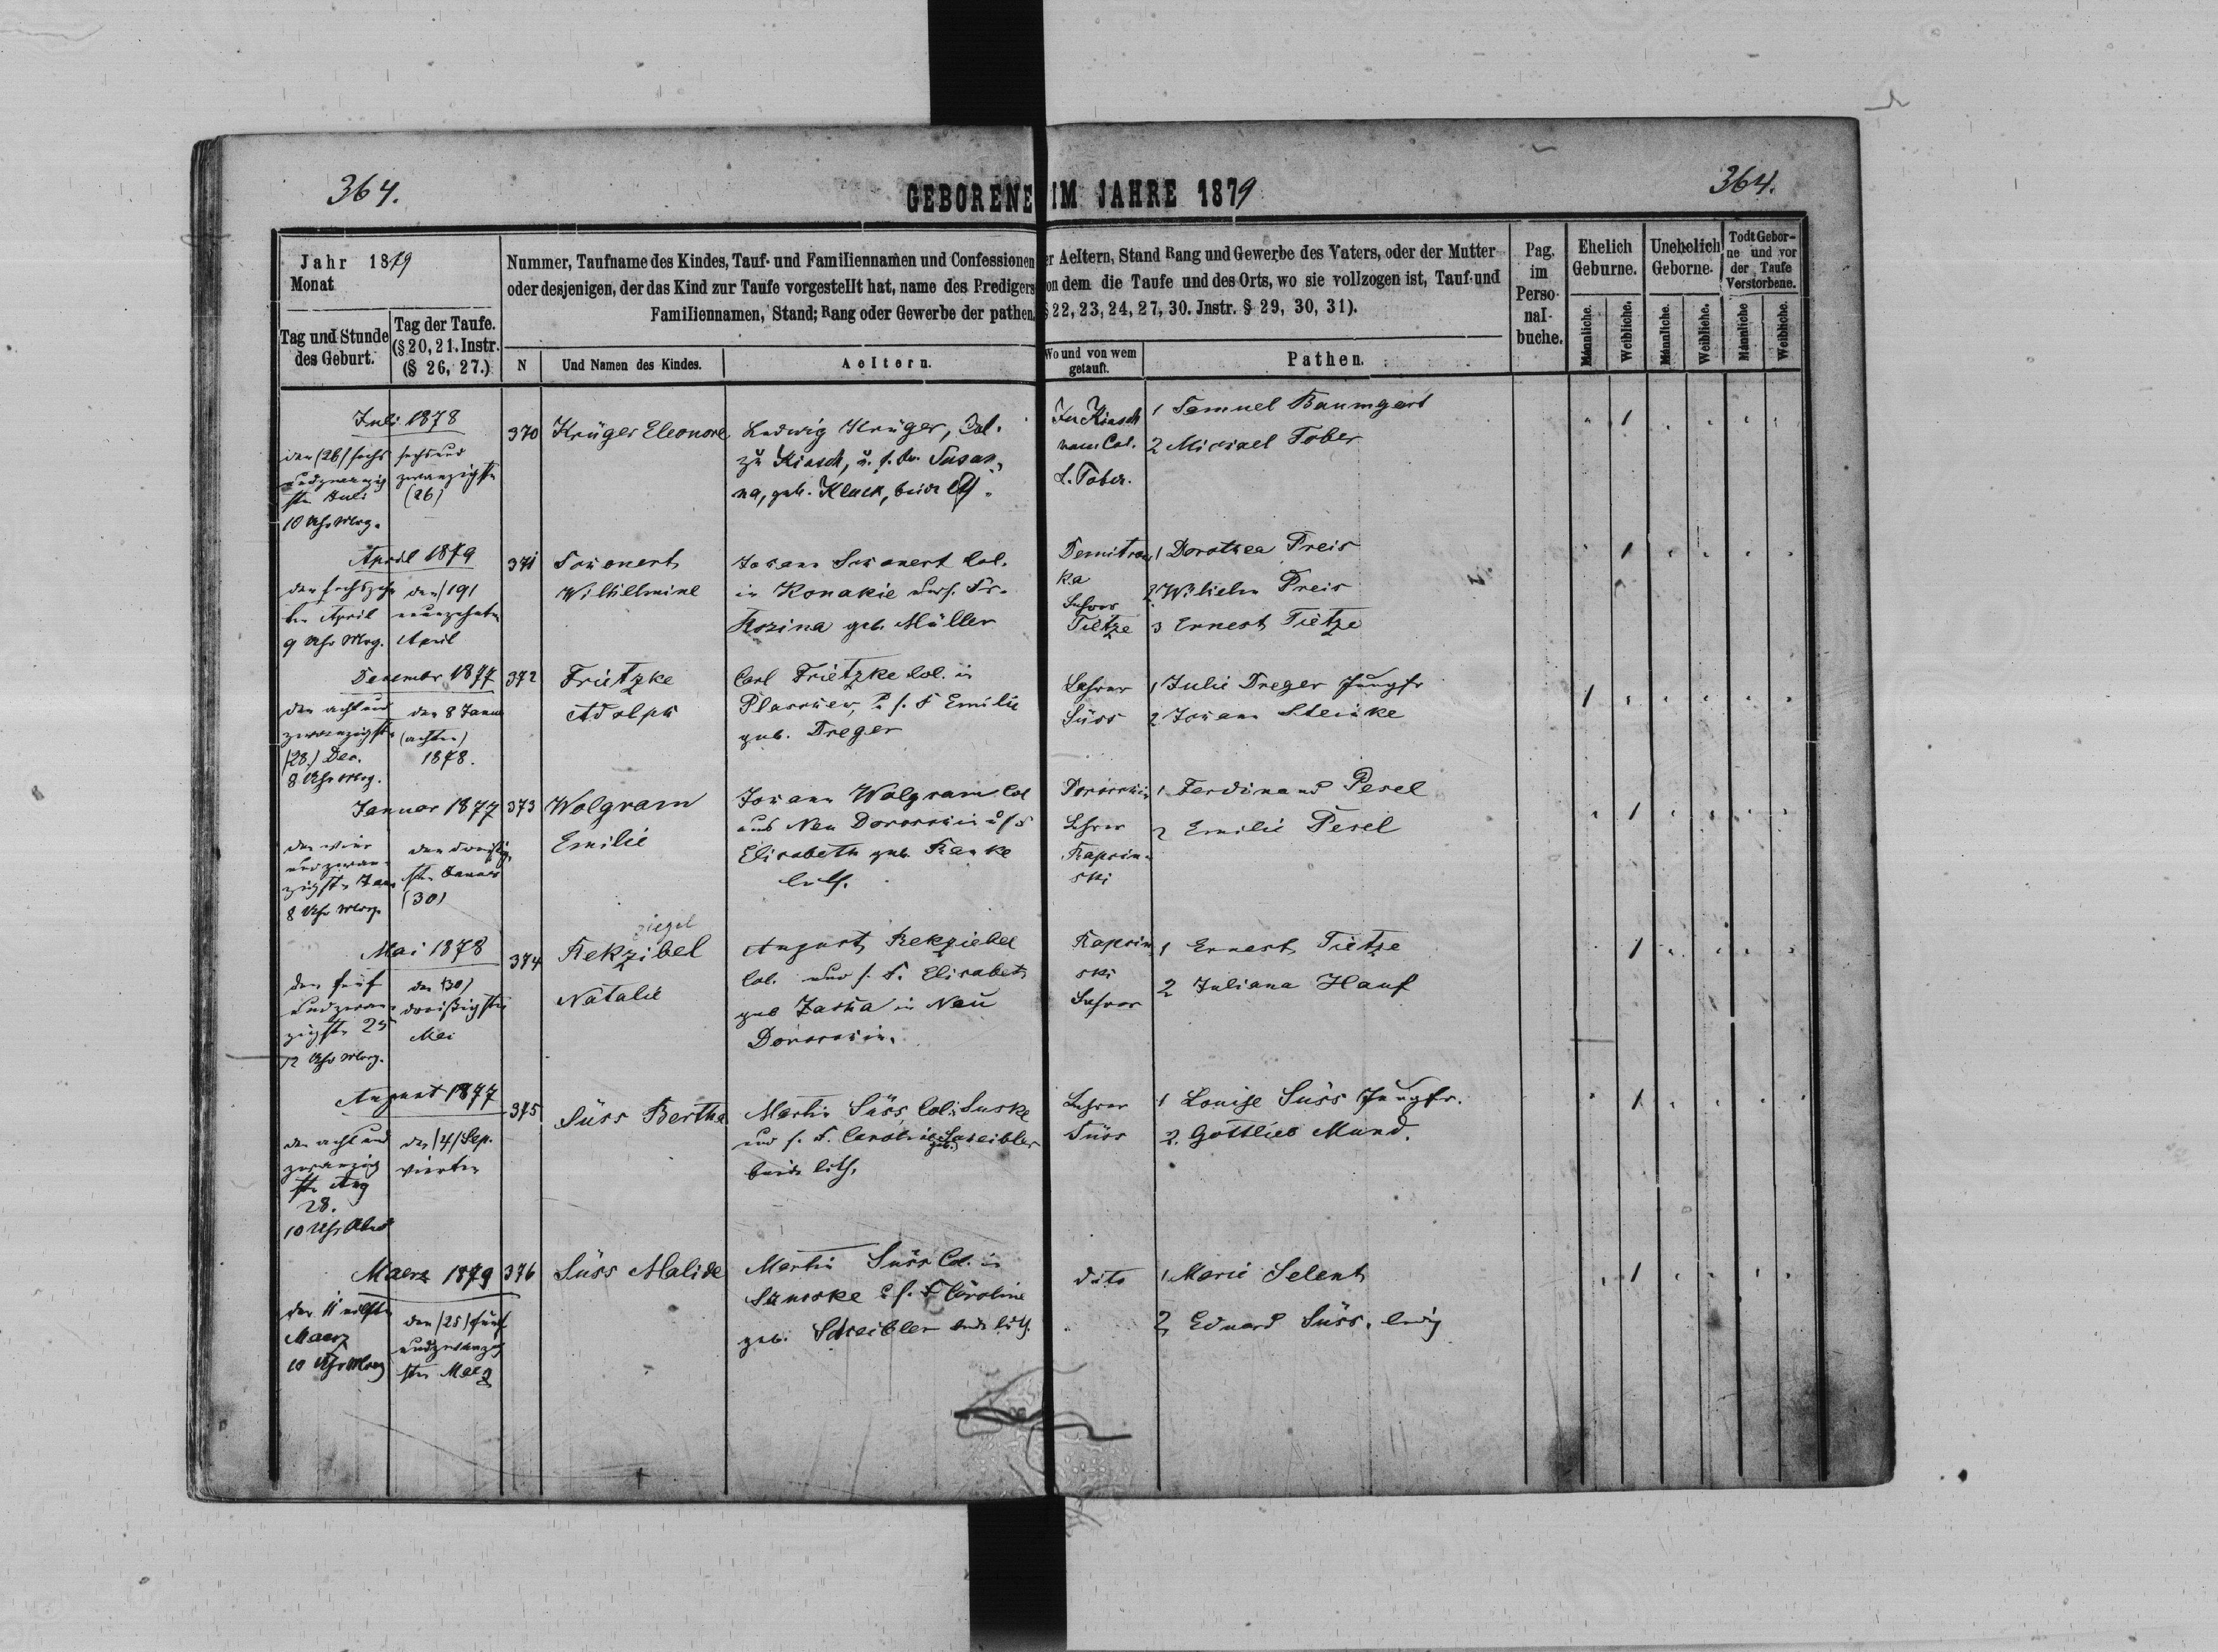 364.
GEBORENE IM JAHRE 1879
364.
Jahr 1879
Monat
Tag und Stunde des Geburt.
Tag der Taufe.
(§ 20, 21. Instr.
(§ 26, 27.)
Nummer, Taufname des Kindes, Tauf- und Familiennamen und Confessionen
er Aeltern, Stand Rang und Gewerbe des Vaters, oder der Mutter
oder desjenigen, der das Kind zur Taufe vorgestellt hat, name des Predigers
on dem die Taufe und des Orts, wo sie vollzogen ist, Tauf-und
Familiennamen, Stand; Rang oder Gewerbe der pathen.
§ 22, 23, 24, 27, 30. Jnstr. § 29, 30, 31).
N
Und Namen des Kindes.
Aeltern.
Wo und von wem
getauft.
Pathen.
Pag.
im
Perso-
nal-
buche.
Ehelich
Geburne.
Unehelich
Geborne.
Todt Gebor-
ne und vor
der Taufe
Verstorbene.
Männliche.
Weibliche.
Männliche.
Weibliche.
Männliche
Weibliche.
Juli 1878
den (26) sechs
undzwanzig
ste Juli
10 Uhr Mrg.
sechs und
zwanzigste
(26)
370
Krüger Eleonore
Ludwig Krüger, Col.
zu Kiasch, u. s. Fr. Susan
na, geb. Kluck, beide
In Kiasch
vom Col.
L. Tober.
1 Samuel Baumgart
2 Michael Tober
1
April 1879
den sechszehn
ten April
9 Uhr Mrg.
den (19)
neunzehnten
April
371
Wilhelmine
in Konakie und s. Fr.
Rozina geb. Müller
Demitrow
ka
Lehrer
Tietze
1 Dorothea Preis
2 Wilhelm Preis
3 Ernest Tietze
1
Dezember 1877
den acht und
zwanzigste
(28.) Dec.
8 Uhr Mrg.
den 8 Januar
(achten)
1878.
372
Frietzke
Adolph
Carl Frietzke Col. in
u. s. F Emilie
geb. Dreger
Lehrer
Süss
1 Julie Dreger Jungfr
2 Johann Steinke
1
Januar 1877
den vier
und zwan-
zigste Jan
8 Uhr Mrg.
den dreißig
ste Januar
(30)
373
Wolgram
Emilie
Johann Wolgram Col
aus Neu Dorossin u s F
Elisabeth geb. Ranke
luth.
Lehrer
Rapsin-
ski
1 Ferdinand Pesel
2 Emilie Pesel
1
Mai 1878
den fünf
und zwan-
zigste 25
12 Uhr Mrg.
den (30)
dreißigste
Mai
374
ziegel
Rekzibel
Natalie
August Rekziebel
Col. und s. F. Elisabeth
geb Zacha in Neu
Rapsin
ski
Lehrer
1 Ernest Tietze
2 Juliana Hauf
1
August 1877
den acht und
zwanzig
ste Aug
28.
10 Uhr Abend
den (4) Sep.
vierten
375
Süss Bertha
Martin Süss, Col.
und s. F. Caroline geb. Schreibler
beide luth.
Lehrer
Süss
1 Louise Süss Jungfr.
2. Gottlieb Mund.
1
Maerz 1879
den 11 eilften
Maerz
10 Uhr Mrg
den (25) fünf
undzwanzig
sten Maerz
376
Süss Malide
Martin Süss Col. in
u s. F Caroline
geb. Schreibler beide luth.
dito
1 Marie Selent
2 Eduard Süss. ledig
1